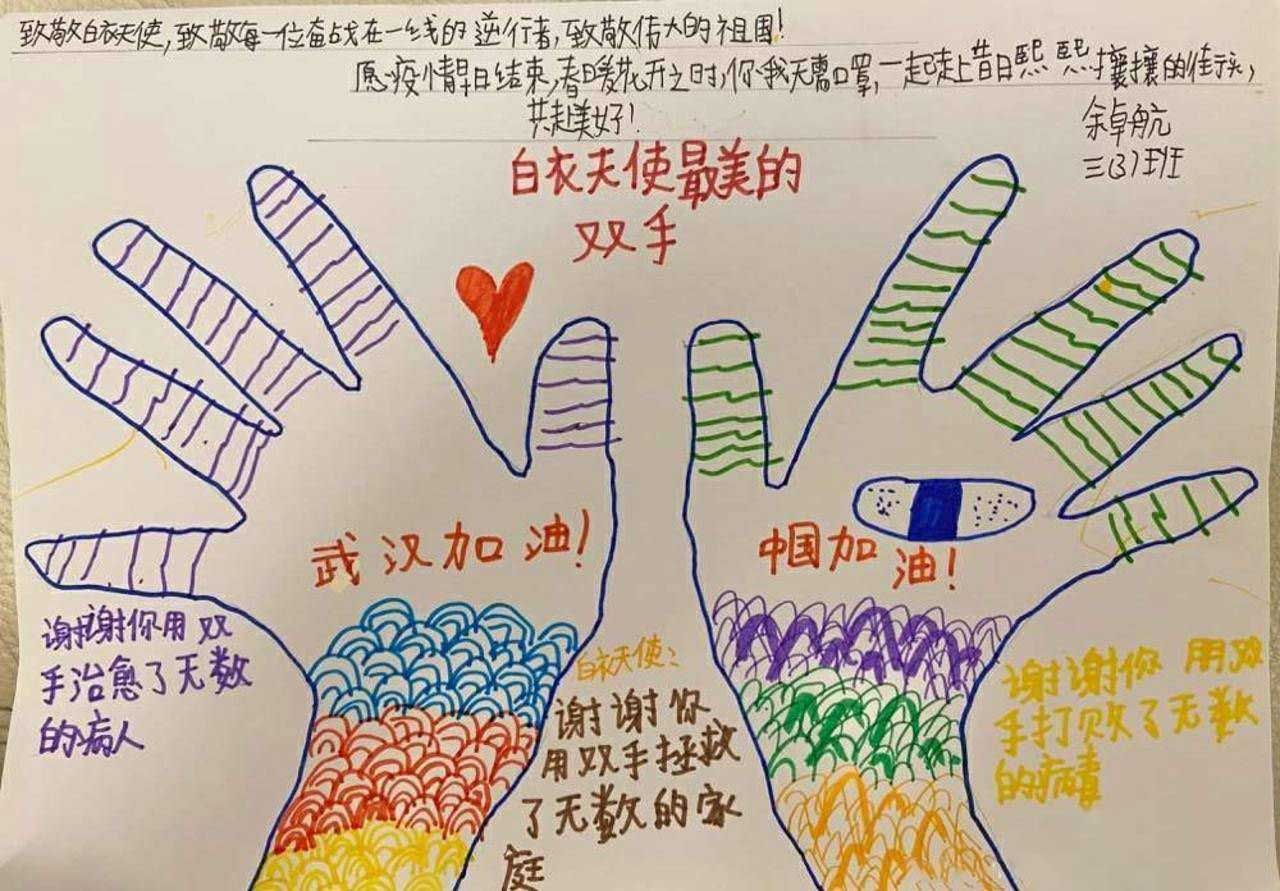 致敬白衣天使,致敬每一位奋战在一线的逆行者,致敬伟大的祖国!
愿疫情早日结束,春暖花开之时,你我无需口罩,一起走上昔日熙熙攘攘的街头,
共赴美好!
余卓航
三(3)班
白衣天使最美的
双手
武汉加油!
中国加油!
谢谢你用双
手治愈了无数
的病人
白衣天使:
谢谢你
用双手拯救
了无数的家
庭
谢谢你用双
手打败了无数
的病毒